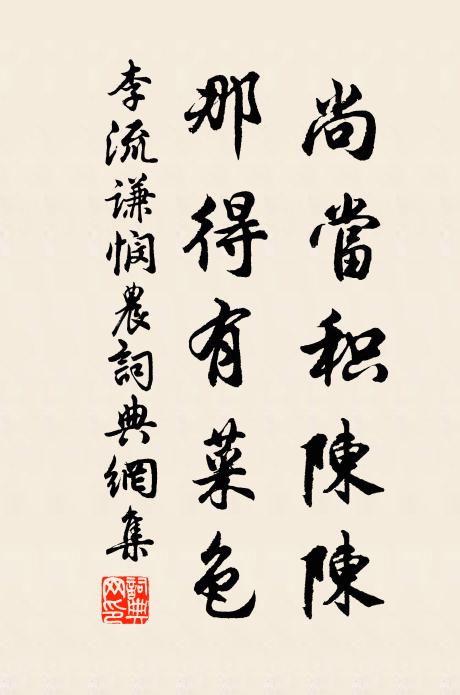 尚當积陳陳
那得有菜色
李流谦憫農詞典網集
詞典网印